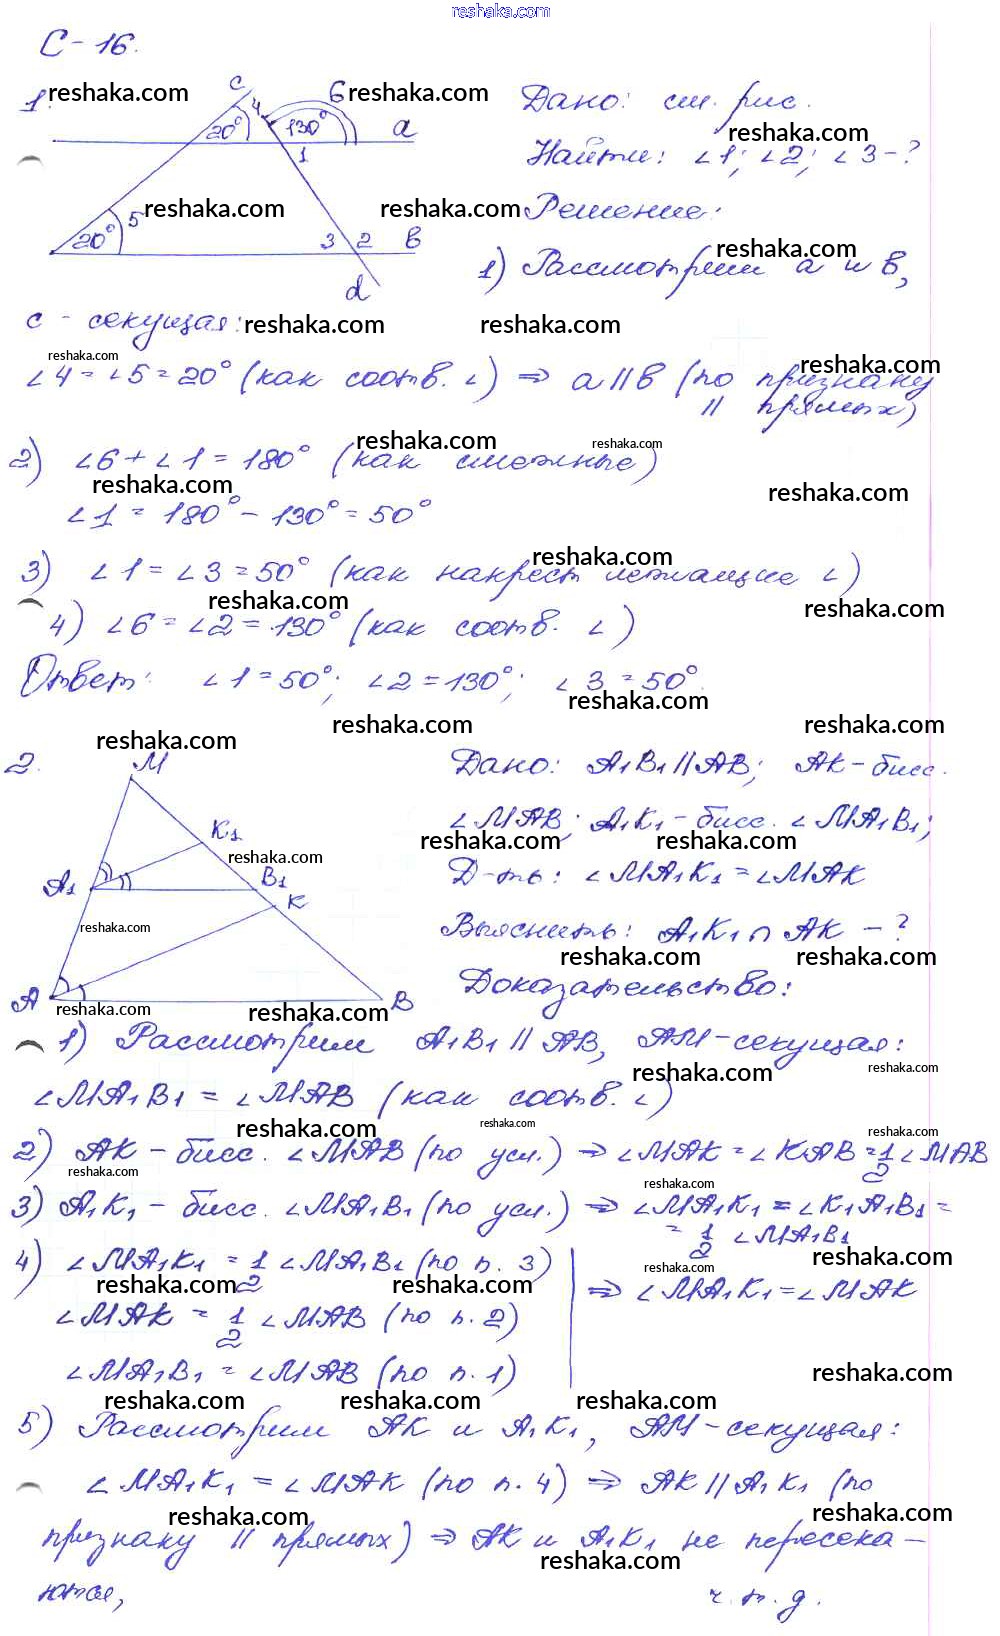 reshaka.com
С-16.
1.
c
4
6
20°
130°
a
1
5
20°
3
2
в
d
Дано: см. рис.
Найти: ∠1; ∠2; ∠3 - ?
Решение:
1) Рассмотрим а и в,
с - секущая:
∠4 = ∠5 = 20° (как соотв. ∠) ⇒ а ∥ в (по признаку
∥ прямых)
2) ∠6 + ∠1 = 180° (как смежные)
∠1 = 180° - 130° = 50°
3) ∠1 = ∠3 = 50° (как накрест лежащие ∠)
4) ∠6 = ∠2 = 130° (как соотв. ∠)
Ответ: ∠1 = 50°; ∠2 = 130°; ∠3 = 50°.
2.
M
K₁
A₁
B₁
K
A
B
Дано: A₁B₁ ∥ AB; AK - бисс.
∠MAB; A₁K₁ - бисс. ∠MA₁B₁;
Д-ть: ∠MA₁K₁ = ∠MAK
Выяснить: A₁K₁ ∩ AK - ?
Доказательство:
1) Рассмотрим A₁B₁ ∥ AB, AM - секущая:
∠MA₁B₁ = ∠MAB (как соотв. ∠)
2) AK - бисс. ∠MAB (по усл.) ⇒ ∠MAK = ∠KAB = 1/2 ∠MAB
3) A₁K₁ - бисс. ∠MA₁B₁ (по усл.) ⇒ ∠MA₁K₁ = ∠K₁A₁B₁ =
= 1/2 ∠MA₁B₁
4) ∠MA₁K₁ = 1/2 ∠MA₁B₁ (по п. 3)
∠MAK = 1/2 ∠MAB (по п. 2)
∠MA₁B₁ = ∠MAB (по п. 1)
⇒ ∠MA₁K₁ = ∠MAK
5) Рассмотрим AK и A₁K₁, AM - секущая:
∠MA₁K₁ = ∠MAK (по п. 4) ⇒ AK ∥ A₁K₁ (по
признаку ∥ прямых) ⇒ AK и A₁K₁ не пересека-
ются,
ч.т.д.